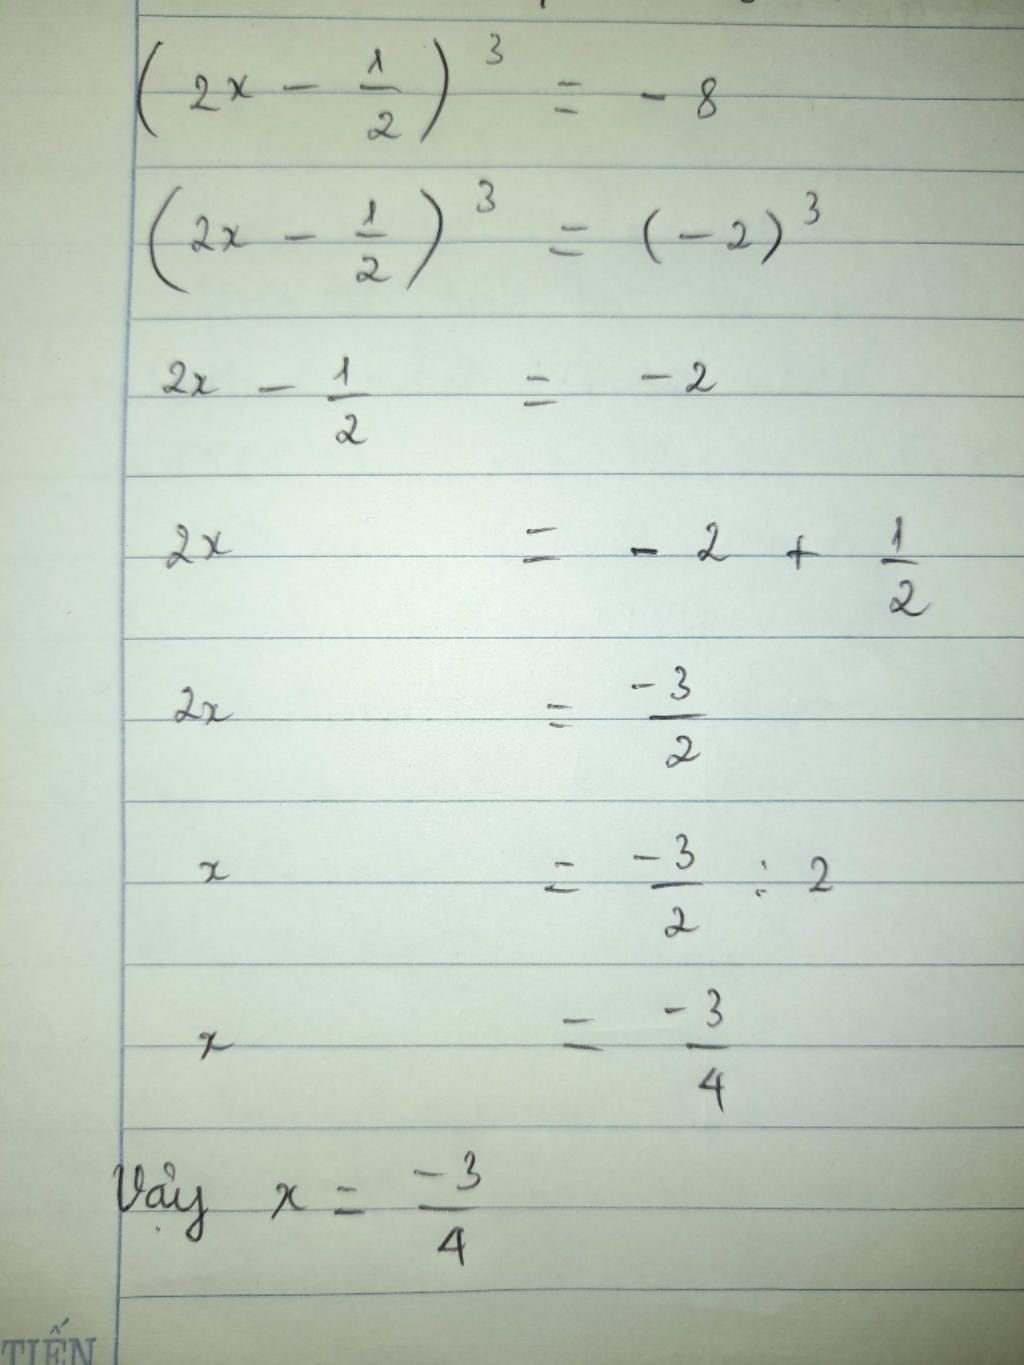 (2x - 1/2)³ = - 8
(2x - 1/2)³ = (-2)³
2x - 1/2 = -2
2x = - 2 + 1/2
2x = -3/2
x = -3/2 : 2
x = -3/4
Vậy x = -3/4
TIẾN